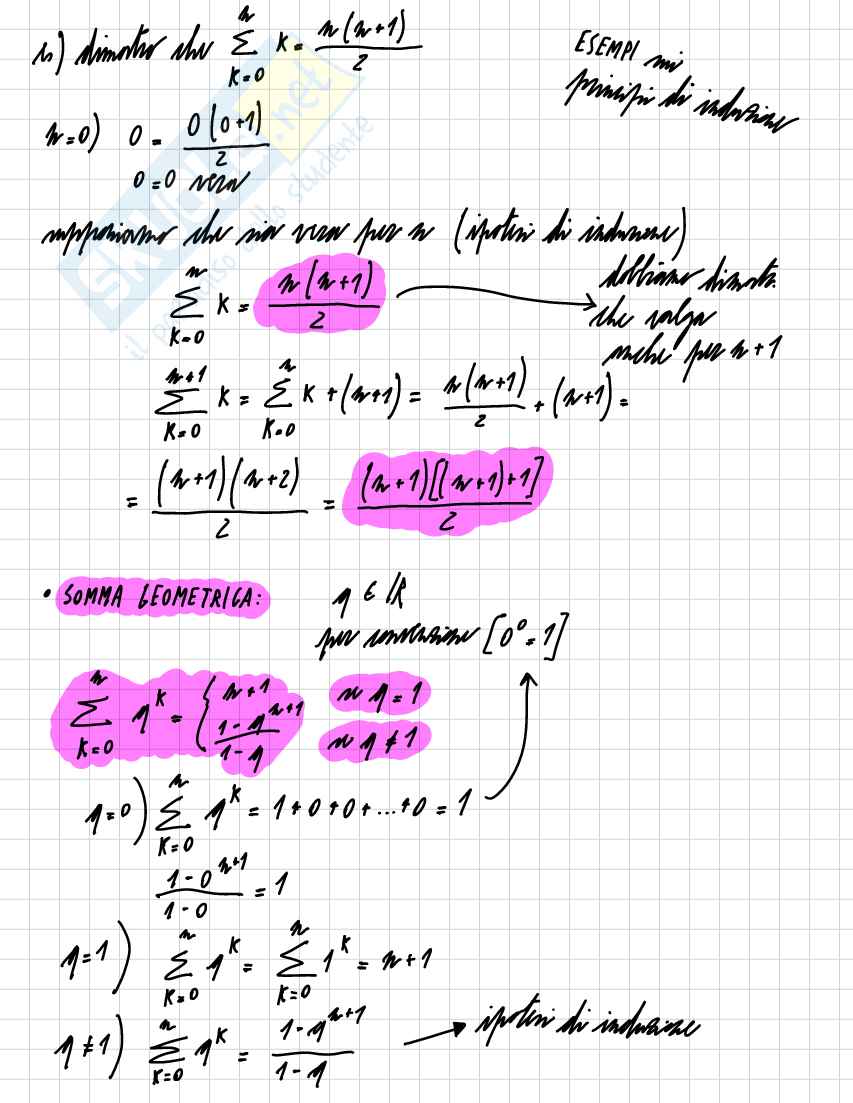 b) dimostro che $\sum_{K=0}^{n} K = \frac{n(n+1)}{2}$
ESEMPI sui
principi di induzione
n=0) $0 = \frac{0(0+1)}{2}$
0=0 vera
supponiamo che sia vera per n (ipotesi di induzione)
$\sum_{K=0}^{n} K = \frac{n(n+1)}{2}$ → dobbiamo dimost.
che valga
anche per n+1
$\sum_{K=0}^{n+1} K = \sum_{K=0}^{n} K + (n+1) = \frac{n(n+1)}{2} + (n+1) =$
$= \frac{(n+1)(n+2)}{2} = \frac{(n+1)[(n+1)+1]}{2}$
• SOMMA GEOMETRICA: q ∈ ℝ
per convenzione [0⁰=1]
$\sum_{K=0}^{n} q^K = \begin{cases} n+1 & se\ q=1 \\ \frac{1-q^{n+1}}{1-q} & se\ q \neq 1 \end{cases}$
q=0) $\sum_{K=0}^{n} q^K = 1+0+0+...+0 = 1$
$\frac{1-0^{n+1}}{1-0} = 1$
q=1) $\sum_{K=0}^{n} q^K = \sum_{K=0}^{n} 1^K = n+1$
q≠1) $\sum_{K=0}^{n} q^K = \frac{1-q^{n+1}}{1-q}$ → ipotesi di induzione
skuola.net
il paradiso dello studente